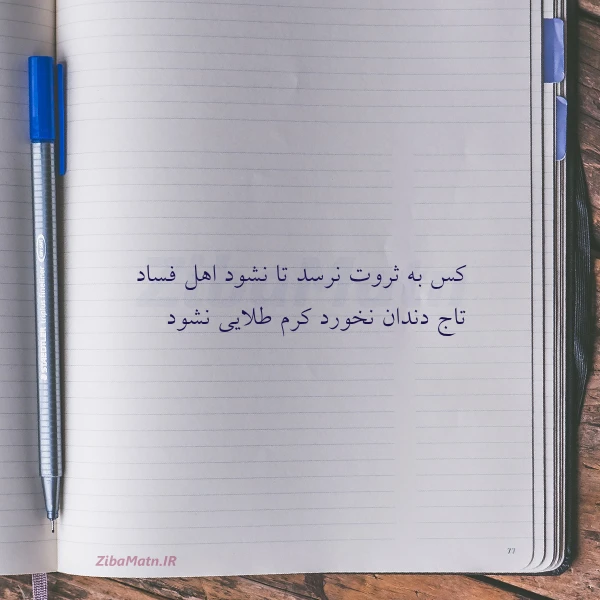 کس به ثروت نرسد تا نشود اهل فساد
تاج دندان نخورد کرم طلایی نشود
ZibaMatn.IR
77